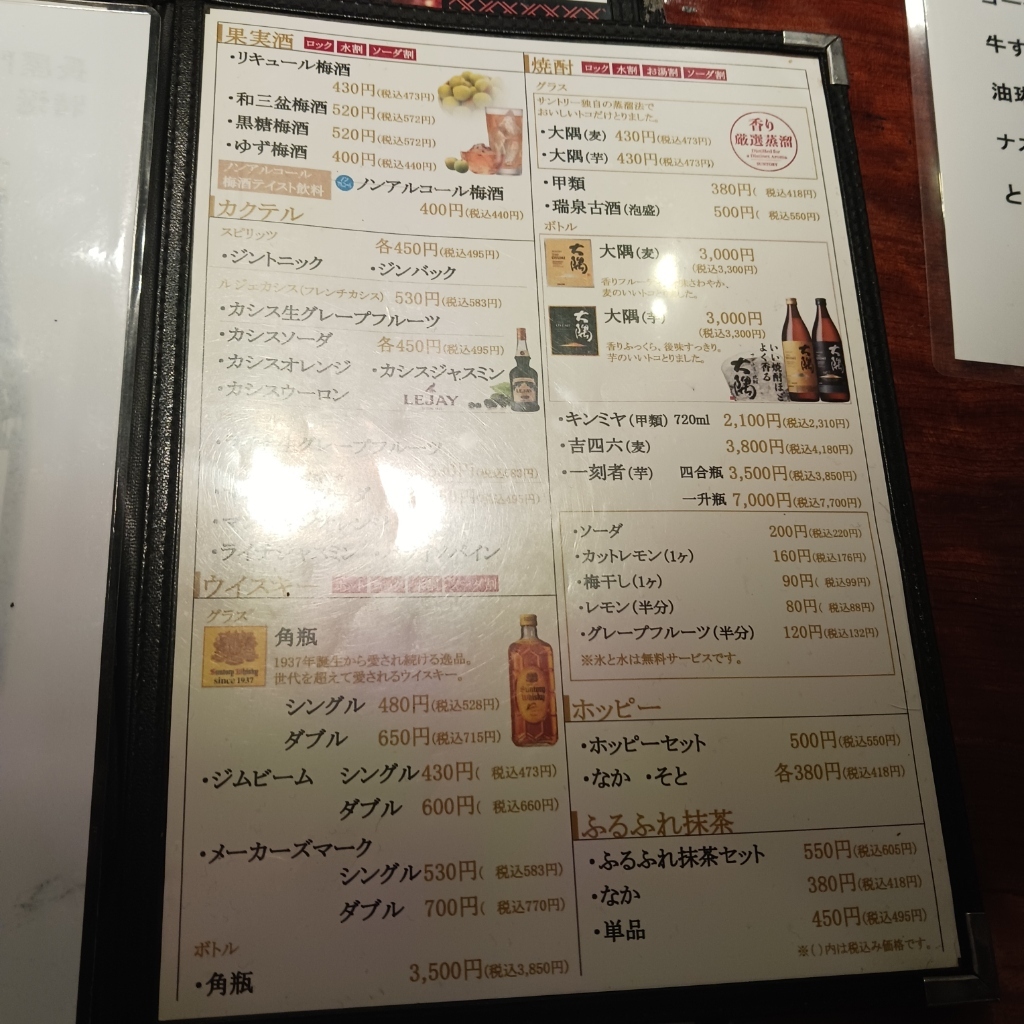 果実酒 ロック 水割 ソーダ割
・リキュール梅酒
430円(税込473円)
・和三盆梅酒 520円(税込572円)
・黒糖梅酒 520円(税込572円)
・ゆず梅酒 400円(税込440円)
ノンアルコール
梅酒テイスト飲料
ノンアルコール梅酒
400円(税込440円)
カクテル
スピリッツ 各450円(税込495円)
・ジントニック ・ジンバック
ルジェカシス(フレンチカシス) 530円(税込583円)
・カシス生グレープフルーツ
・カシスソーダ 各450円(税込495円)
・カシスオレンジ ・カシスジャスミン
・カシスウーロン
LEJAY
グレープフルーツ
ウイスキー
グラス
角瓶
1937年誕生から愛され続ける逸品。
世代を超えて愛されるウイスキー。
since 1937
シングル 480円(税込528円)
ダブル 650円(税込715円)
・ジムビーム シングル 430円( 税込473円)
ダブル 600円( 税込660円)
・メーカーズマーク
シングル 530円( 税込583円)
ダブル 700円( 税込770円)
ボトル
・角瓶 3,500円(税込3,850円)
焼酎 ロック 水割 お湯割 ソーダ割
グラス
サントリー独自の蒸溜法で
おいしいトコだけとりました。
・大隅(麦) 430円(税込473円)
・大隅(芋) 430円(税込473円)
香り
厳選蒸溜
・甲類 380円( 税込418円)
・瑞泉古酒(泡盛) 500円( 税込550円)
ボトル
大隅
大隅(麦) 3,000円
(税込3,300円)
麦のいいトコとりました。
大隅
大隅(芋) 3,000円
(税込3,300円)
香りふっくら、後味すっきり。
芋のいいトコとりました。
いい焼酎ほど
よく香る
大隅
・キンミヤ(甲類) 720ml 2,100円(税込2,310円)
・吉四六(麦) 3,800円(税込4,180円)
・一刻者(芋) 四合瓶 3,500円(税込3,850円)
一升瓶 7,000円(税込7,700円)
・ソーダ 200円(税込220円)
・カットレモン(1ヶ) 160円(税込176円)
・梅干し(1ヶ) 90円( 税込99円)
・レモン(半分) 80円( 税込88円)
・グレープフルーツ(半分) 120円(税込132円)
※氷と水は無料サービスです。
ホッピー
・ホッピーセット 500円(税込550円)
・なか ・そと 各380円(税込418円)
ふるふれ抹茶
・ふるふれ抹茶セット 550円(税込605円)
・なか 380円(税込418円)
・単品 450円(税込495円)
※( )内は税込み価格です。
牛す
ナス
と